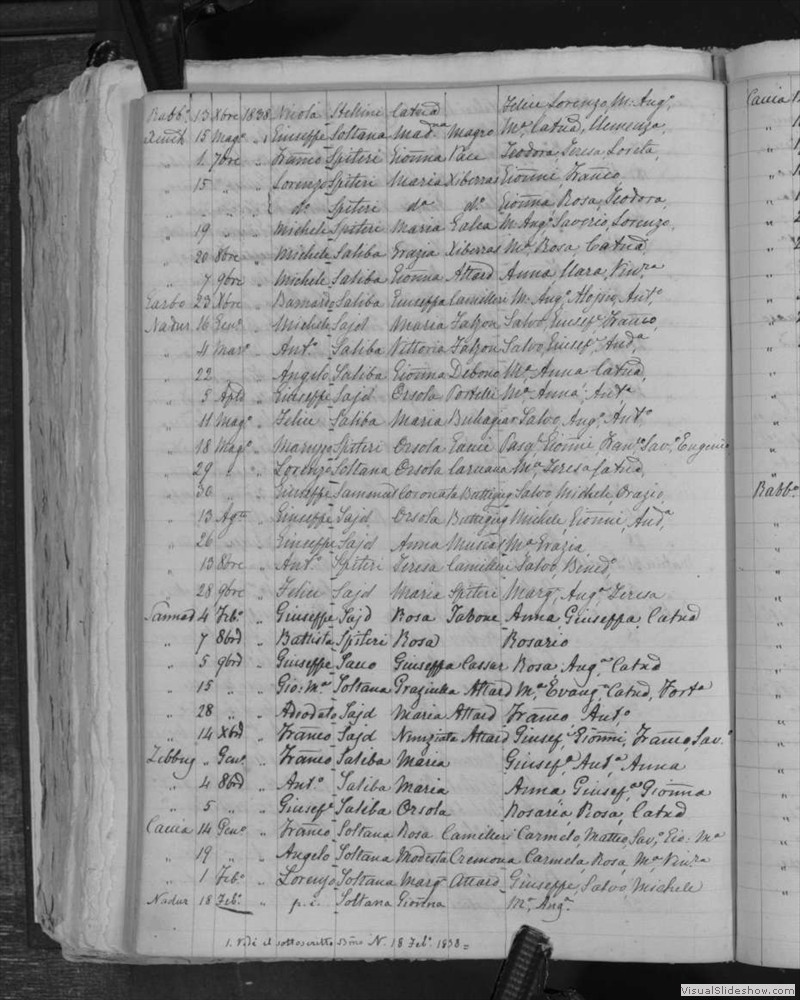 Rabb.º 13 Xbre 1838 Nicola Stellini Catnã Felice Lorenzo, M: Ang.ª
15 Mag.º „ Giuseppe Soltana Mad.na Magro M.ª Catnã, Clemenza,
„ 1. 7bre „ Franco Spiteri Gionna Pace Teodora, Teresa, Loreta,
„ 15 „ „ Lorenzo Spiteri Maria Xiberras Gionni, Franco
„ „ „ d.º Spiteri d.ª d.º Gionna, Rosa, Teodora,
„ 19 „ „ Michele Spiteri Maria Galea M. Ang.ª Saverio, Lorenzo,
„ 20 8bre „ Michele Saliba Grazia Xiberras M.ª, Rosa, Catnã
„ 7 9bre „ Michele Saliba Gionna Attard Anna Clara, Vin.za
Garbo 23 Xbre „ Bernardo Saliba Giuseppa Camilleri M: Ang.ª Ant.º
Nadur 16 Gen.º „ Michele Sajd Maria Falzon Salvo, Giusef.ª Franco,
„ 4 Mar.º „ Ant.º Saliba Vittoria Falzon Salvo, Giusef.ª, And.ª
„ 22 „ Angelo Saliba Gionna Debono M.ª Anna Catnã,
„ 5 Aple „ Giuseppe Sajd Orsola Portelli M.ª Anna, Ant.ª
„ 11 Mag.º „ Felice Saliba Maria Buhagiar Salvo, Ang.ª, Ant.º
„ 18 Mag.º „ Spiteri Orsola Pasq.ª, Gionni, Sav.º, Eugenio
„ 29 „ „ Lorenzo Soltana Orsola Caruana M.ª Teresa, Catnã,
„ 30 „ „ Giuseppe Coronata Buttigieg Salvo, Michele, Orazio,
„ 13 Ag.to „ Giuseppe Sajd Orsola Buttigieg Michele, Gionni, And.ª
„ 26 „ „ Giuseppe Sajd Anna M.ª Grazia
„ 13 8bre „ Ant.º Spiteri Teresa Camilleri Salvo,
„ 28 9bre „ Felice Sajd Maria Spiteri Marg.ª, Ang.ª, Teresa
Sannad 4 Feb.º „ Giuseppe Sajd Rosa Tabone Anna, Giuseppa, Catnã
„ 7 8bre „ Battista Spiteri Rosa Rosario
„ 5 9bre „ Giuseppe Giuseppa Cassar Rosa, Ang.ª, Catnã
„ 15 „ „ Gio: M.ª Soltana Graziulla Attard M.ª, Evang.ª Catnã, Fort.ª
„ 28 „ „ Adeodato Sajd Maria Attard Franco, Ant.º
„ 14 Xbre „ Franco Sajd Nunziata Attard Giusef.ª, Gionni, Franco Sav.º
Zebbug „ Gen.º „ Franco Saliba Maria Giusef.ª, Ant.ª, Anna
„ 4 8bre „ Ant.º Saliba Maria Anna Giusef.ª, Gionna
„ 5 „ „ Giusef.e Saliba Orsola Rosaria, Rosa, Catnã
Caccia 14 Gen.º „ Franco Soltana Rosa Camilleri Carmelo, Matteo, Sav.º, Gio: M.ª
„ 19 „ „ Angelo Soltana Modesta Cremona Carmela, Rosa, M.ª Vin.za
„ 1 Feb.º „ Lorenzo Soltana Marg.ª Attard Giuseppe, Salvo, Michele
Nadur 18 Feb.º „ p. i. Soltana Gionna M.ª, Ang.ª
1. Vedi il sottoscritto N. 18 Feb.º 1838 =
Caccia
Rabb.º
VisualSlideshow.com